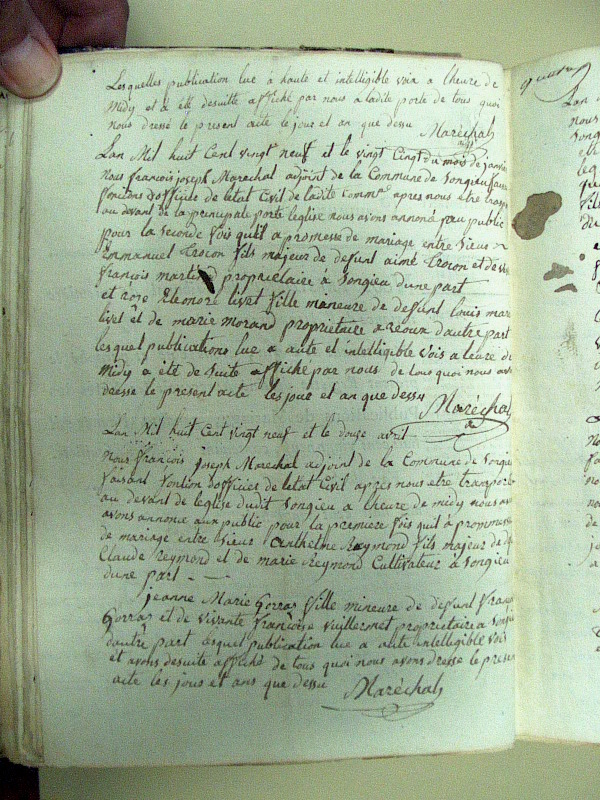 Lesquelles publication lue à haute et intelligible voix a lheure de
Midy et a été desuitte affiché par nous a ladite porte de tous quoi
nous dressé le present acte le jour et an que dessu Maréchal
adj
Lan Mil huit Cent vingt neuf et le vingt Cinq du mois de janvier
Nous francois joseph Marechal adjoint de la Commune de Songieu faisant
fonctions dofficié de letat Civil de ladite Comm.e apres nous etre transp
au devant de la principale porte leglise nous avons annoncé au public
pour la Seconde fois quil a promesse de mariage entre Sieur
Emmanuel trocon fils majeur de defunt aimé trocon et de
francois martinod propriétaire à Songieu dune part
et róze Eleonore livet fille mineure de defunt louis marie
livet et de marie morand propriétaire a reoux dautre part
lesquel publications lue a aute et intelligible vois a leure de
Midy a été de suite affiché par nous de tous quoi nous avons
dresse le present acte les joue et an que dessu Maréchal
adj
Lan Mil huit cent vingt neuf et le douze avril
Nous françois joseph Marechal adjoint de la Commune de Songieu
faisant fontion dofficiés de letat Civil après nous etre transporté
au devant de leglise dudit Songieu a lheure de midy nous
avons annoncé aux public pour la première fois quil à promesse
de mariage entre Sieur anthelme Reymond fils majeur de
Claude Reymond et de marie Reymond Cultivateur à Songieu
dune part
jeanne Marie Gorras fille mineure de defunt françois
Gorras et de vivante françoise Vuillermet propriétaire a Songieu
dautre part lesquel publication lue a aute intelligible vois
et avons desuite affiché de tous quoi nous avons dresse le present
acte les jours et ans que dessu Maréchal